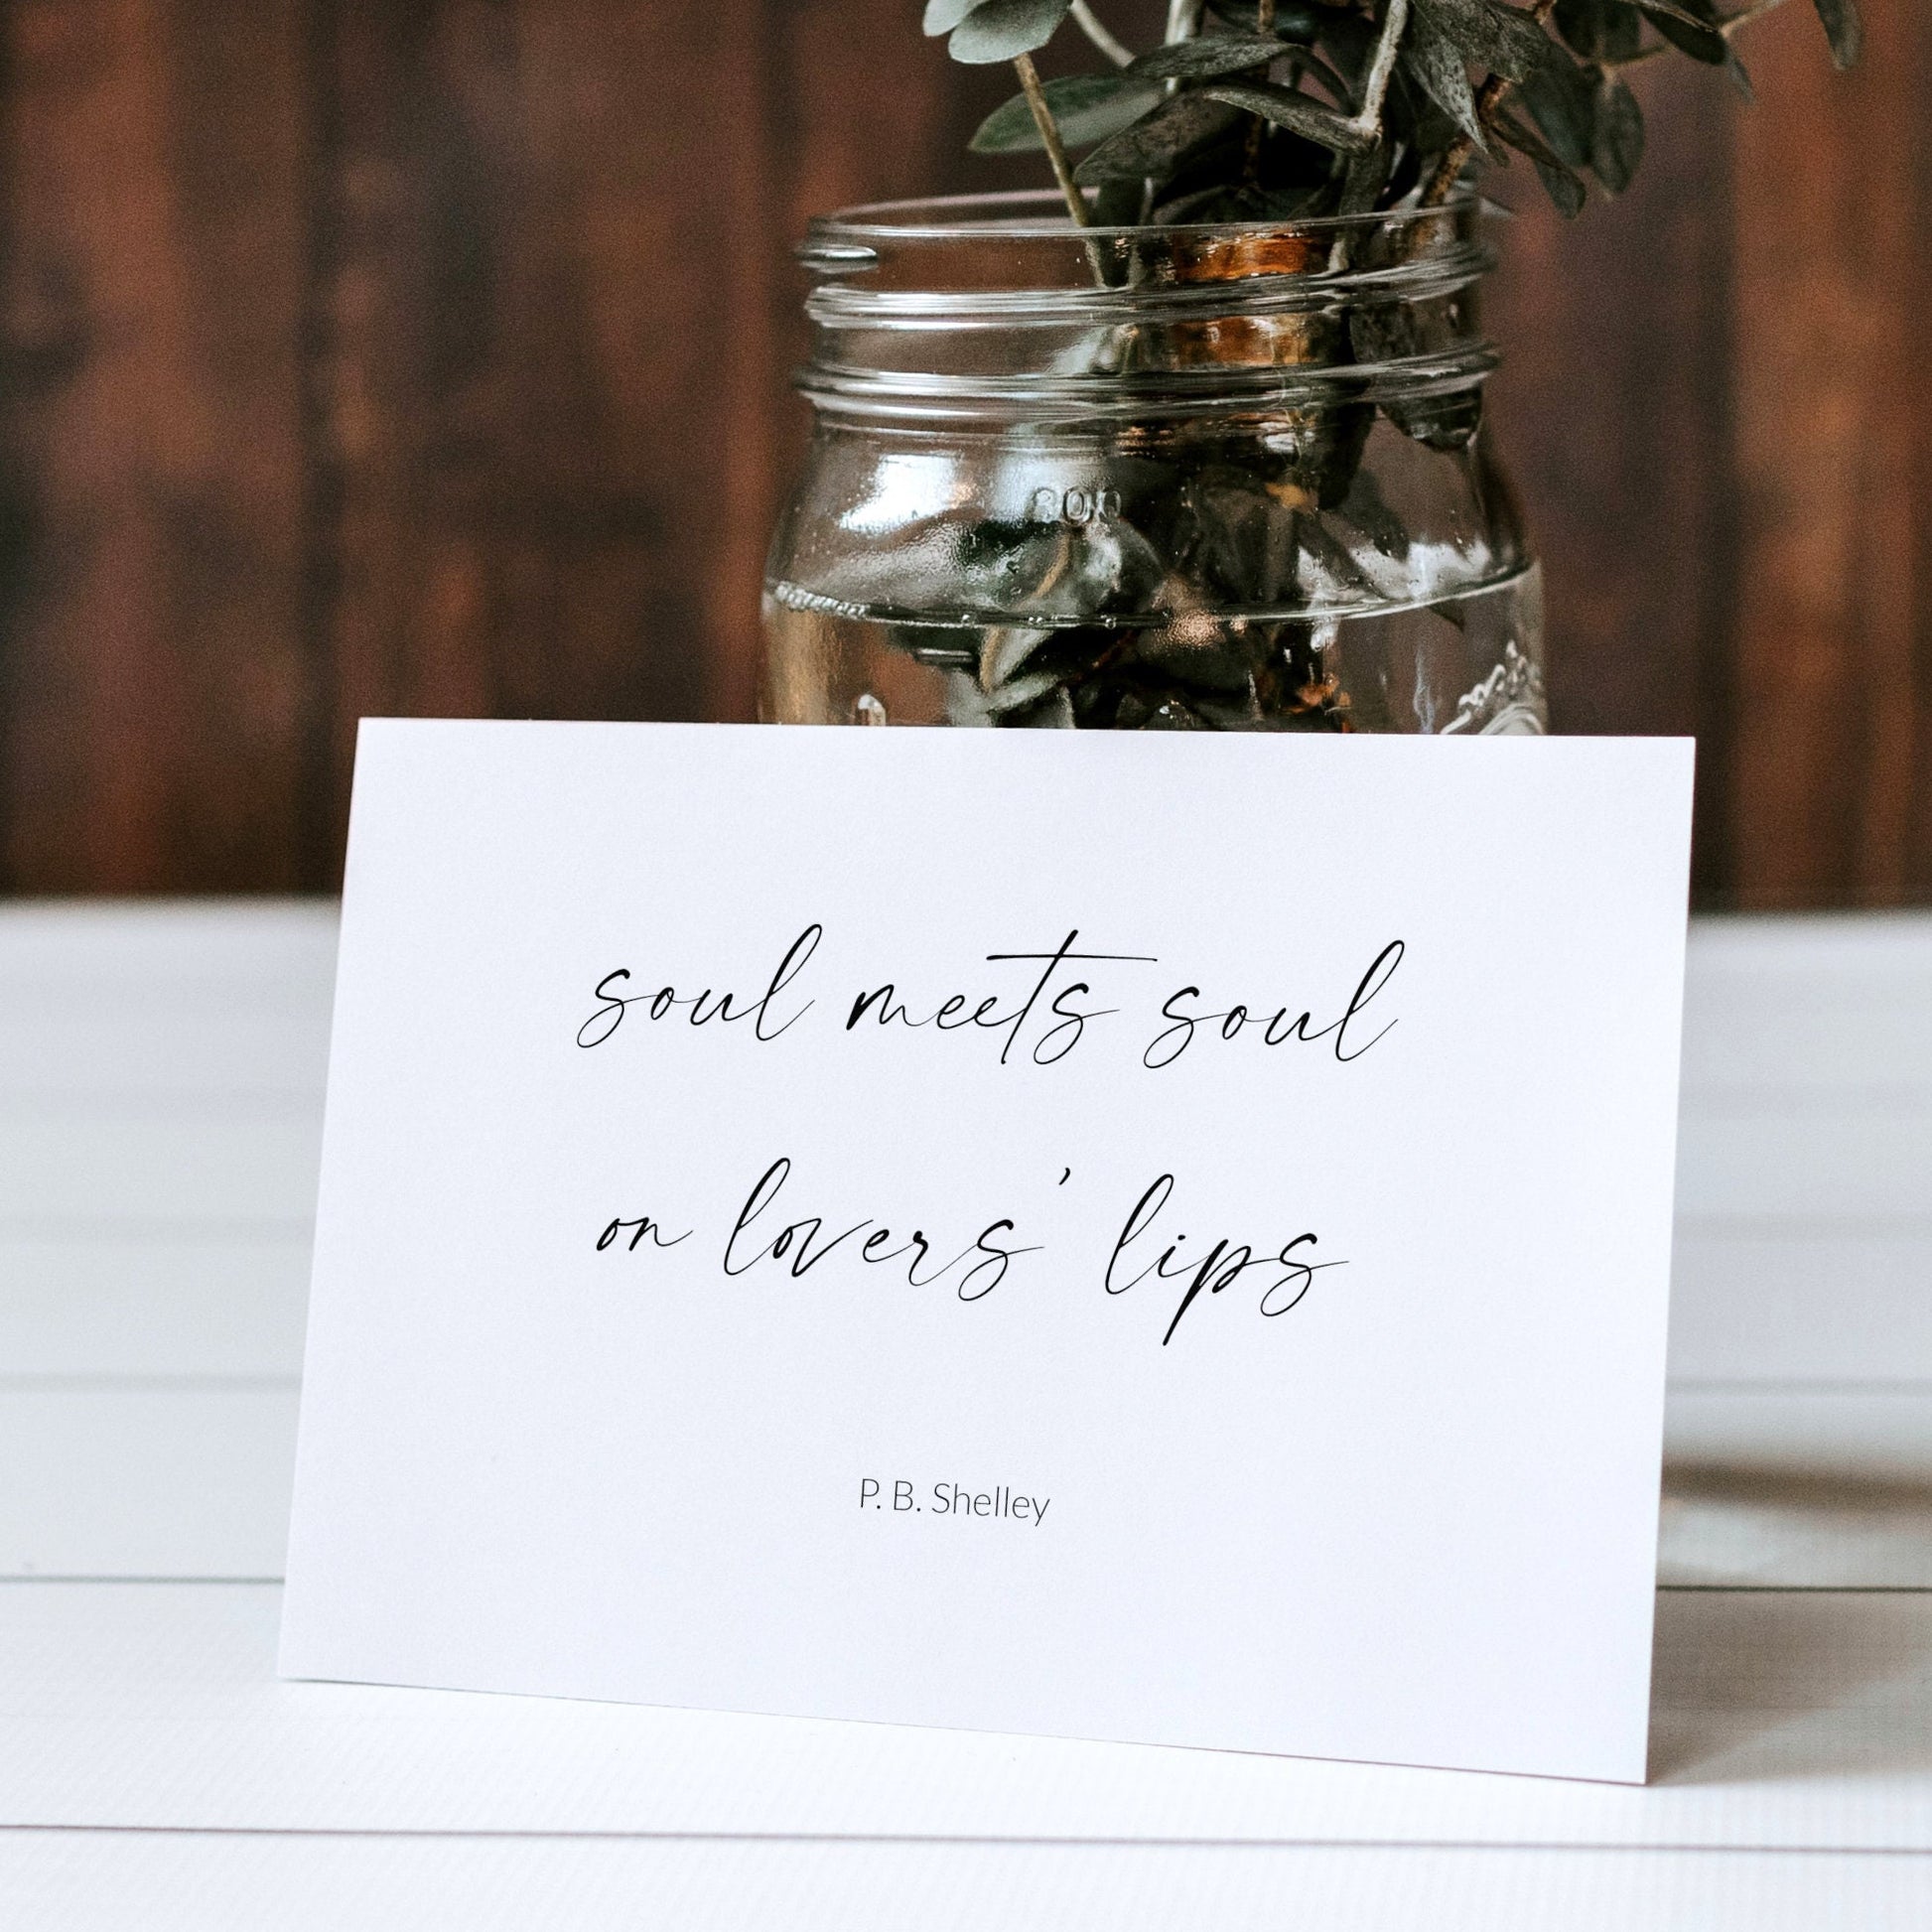 800
soul meets soul
on lovers' lips
P. B. Shelley